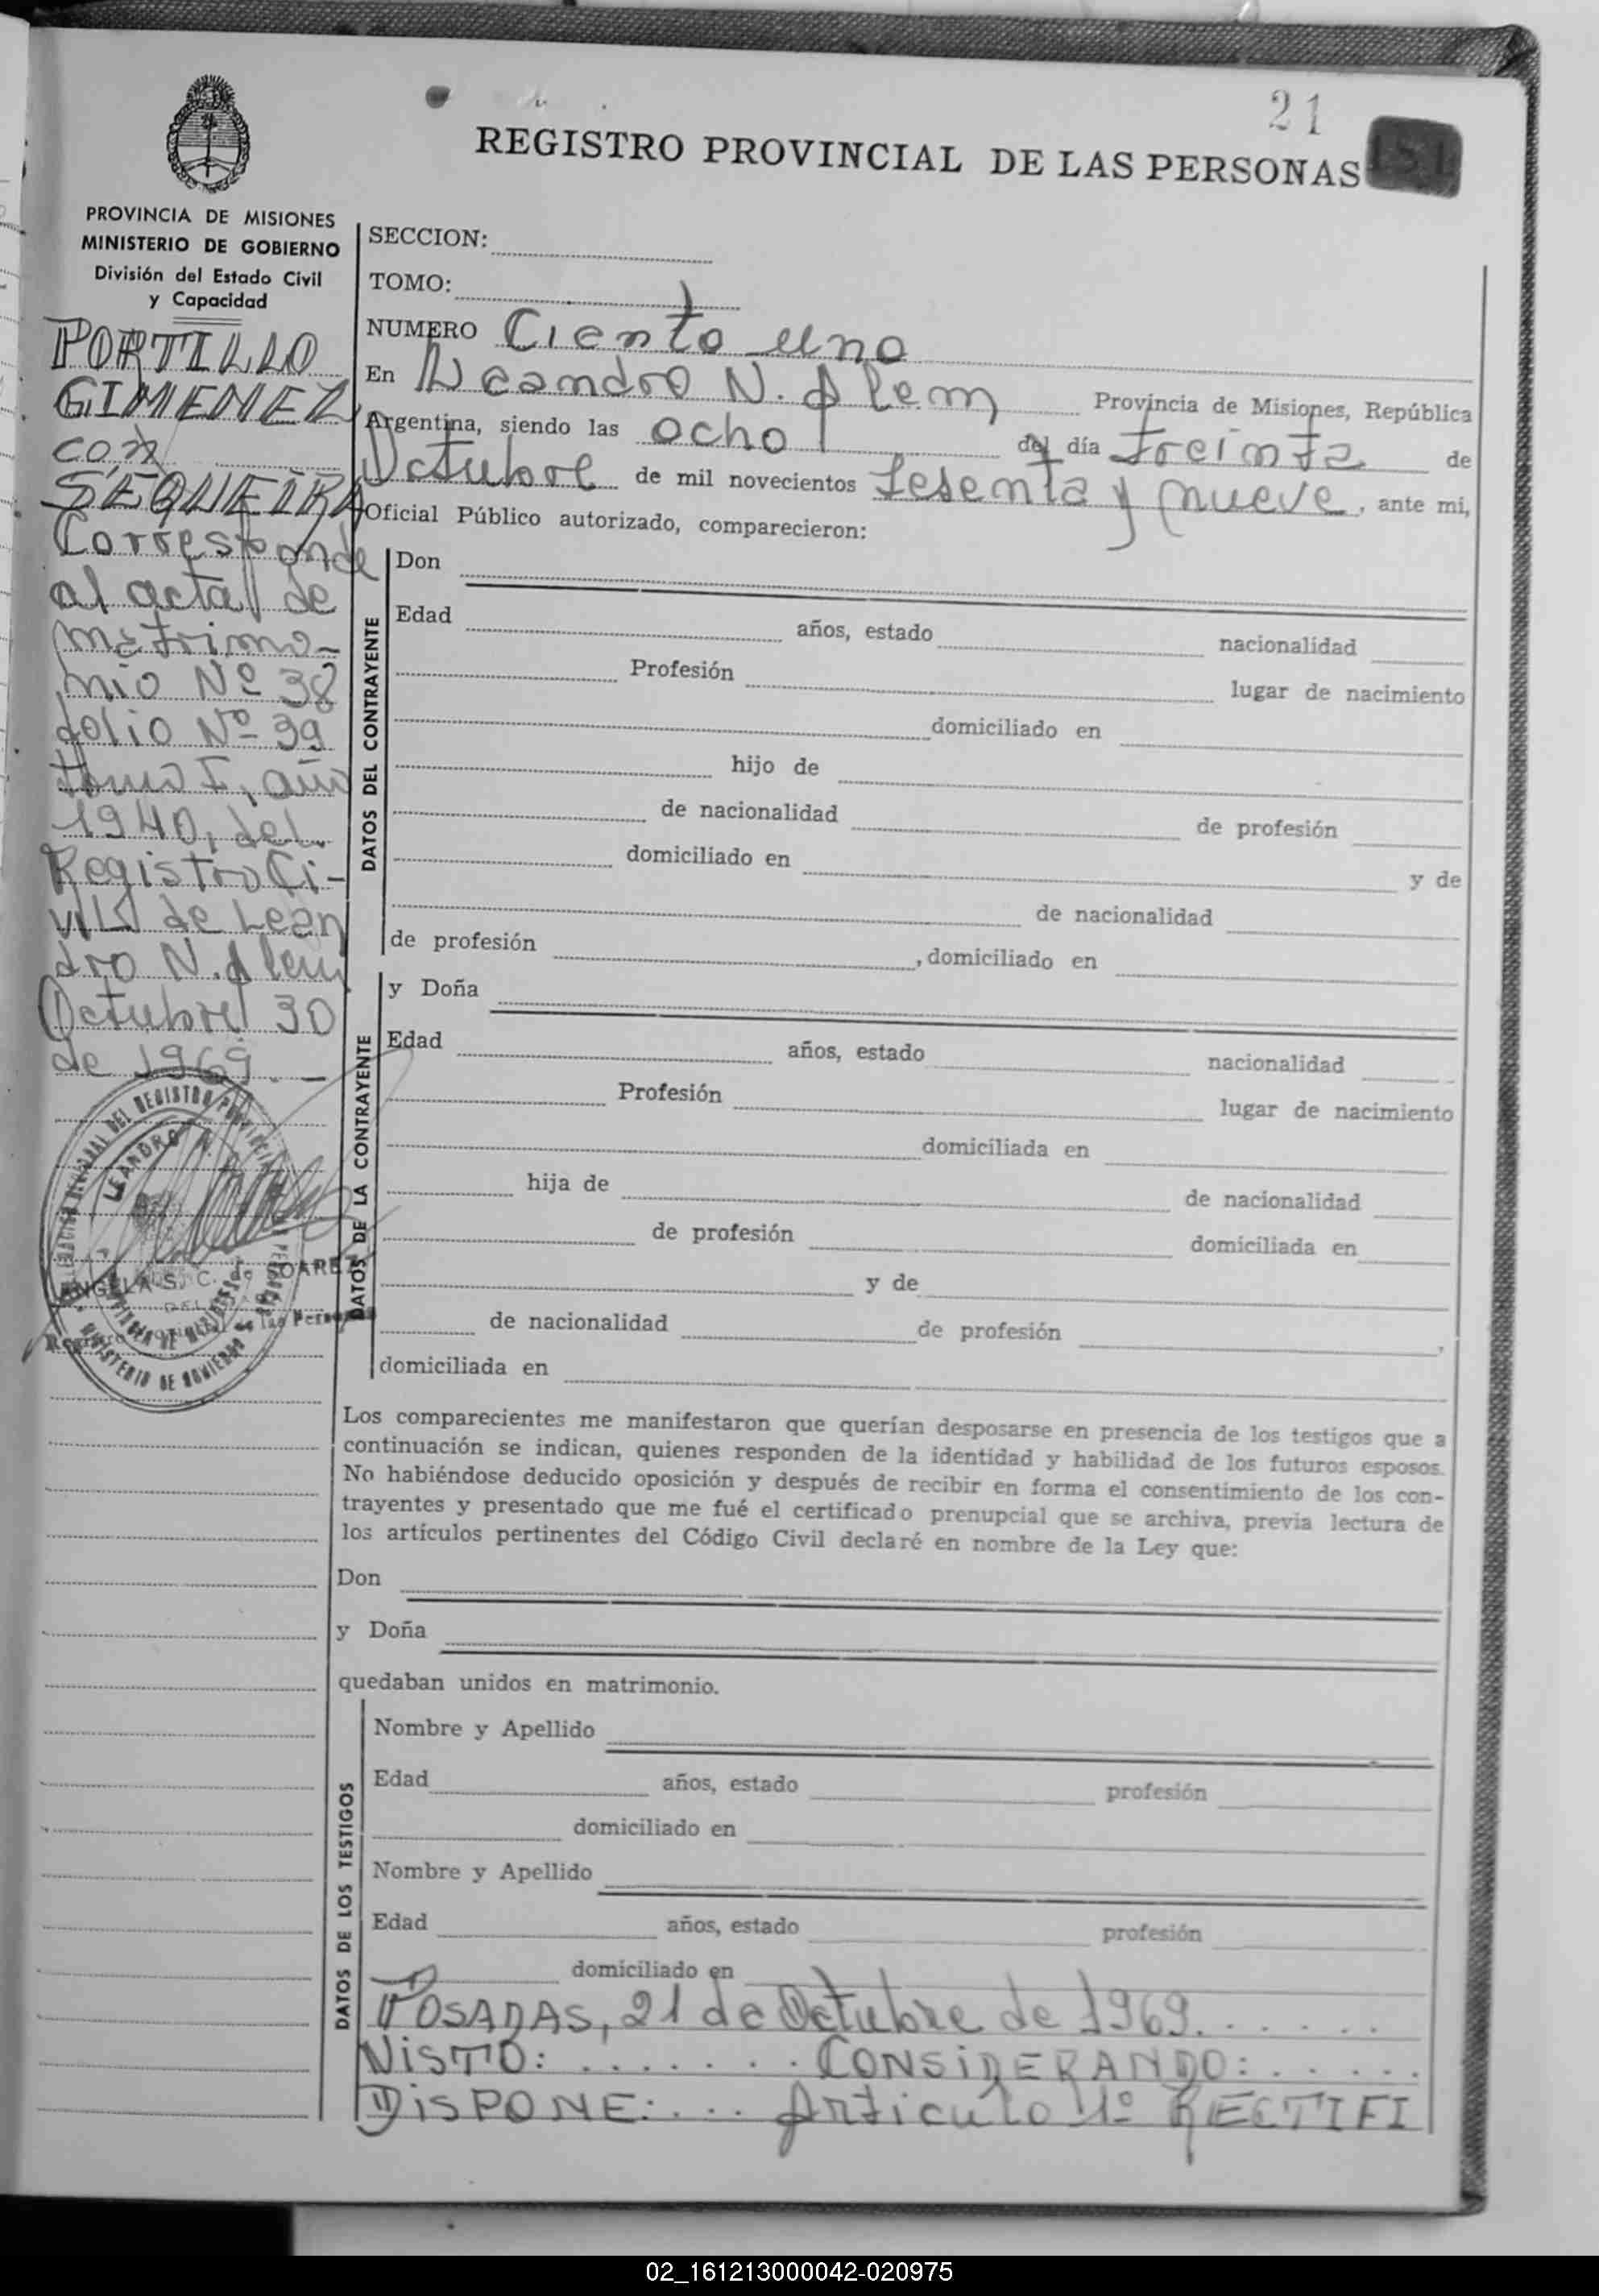 21
151
REGISTRO PROVINCIAL DE LAS PERSONAS
PROVINCIA DE MISIONES
MINISTERIO DE GOBIERNO
División del Estado Civil
y Capacidad
PORTILLO
GIMENEZ
con
SEQUEIRA
Corresponde
al acta de
matrimo-
nio Nº 38
folio Nº 39
tomo I, año
1940, del
Registro Ci-
vil de Lean
dro N. Alem
Octubre 30
de 1969.-
LEANDRO N.
ANGELA S. C. de SOAREZ
Registro Provincial de las Personas
MINISTERIO DE GOBIERNO
SECCION:
TOMO:
NUMERO Ciento uno
En Leandro N. Alem Provincia de Misiones, República
Argentina, siendo las ocho del día treinta de
Octubre de mil novecientos sesenta y nueve, ante mi,
Oficial Público autorizado, comparecieron:
DATOS DEL CONTRAYENTE
Don
Edad años, estado nacionalidad
Profesión lugar de nacimiento
domiciliado en
hijo de
de nacionalidad de profesión
domiciliado en y de
de nacionalidad
de profesión , domiciliado en
DATOS DE LA CONTRAYENTE
y Doña
Edad años, estado nacionalidad
Profesión lugar de nacimiento
domiciliada en
hija de de nacionalidad
de profesión domiciliada en
y de
de nacionalidad de profesión ,
domiciliada en
Los comparecientes me manifestaron que querían desposarse en presencia de los testigos que a
continuación se indican, quienes responden de la identidad y habilidad de los futuros esposos.
No habiéndose deducido oposición y después de recibir en forma el consentimiento de los con-
trayentes y presentado que me fué el certificado prenupcial que se archiva, previa lectura de
los artículos pertinentes del Código Civil declaré en nombre de la Ley que:
Don
y Doña
quedaban unidos en matrimonio.
DATOS DE LOS TESTIGOS
Nombre y Apellido
Edad años, estado profesión
domiciliado en
Nombre y Apellido
Edad años, estado profesión
domiciliado en
POSADAS, 21 de Octubre de 1969. . . . . .
VISTO: . . . . . . . CONSIDERANDO: . . . . .
DISPONE: . . . Artículo 1º RECTIFI
02_161213000042-020975